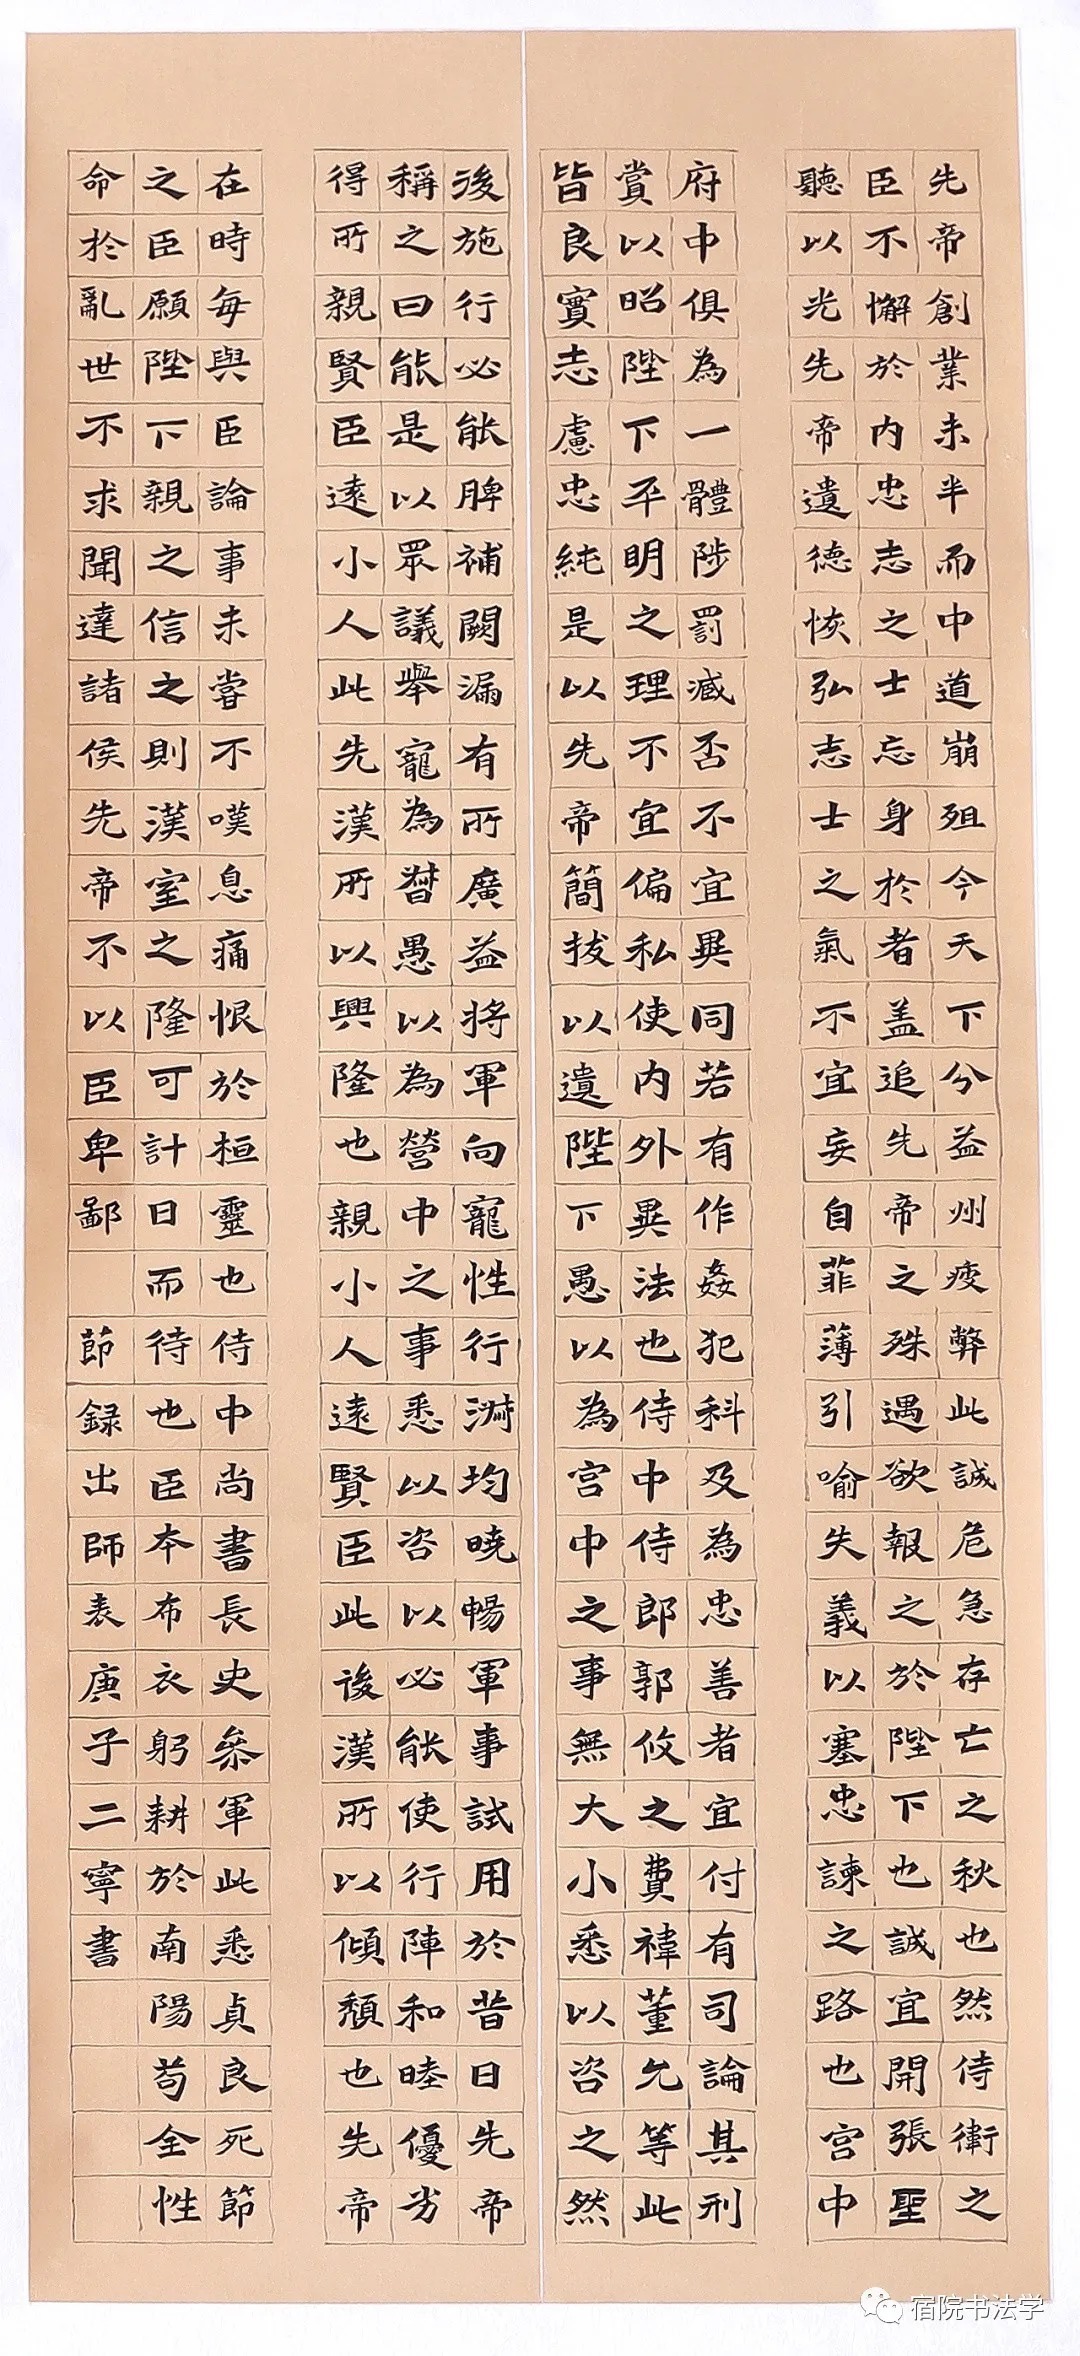 先帝創業未半而中道崩殂今天下分益州疲弊此誠危急存亡之秋也然侍衛之
臣不懈於內忠志之士忘身於者盖追先帝之殊遇欲報之於陛下也誠宜開張聖
聽以光先帝遺德恢弘志士之氣不宜妄自菲薄引喻失義以塞忠諫之路也宮中
府中俱為一體陟罰臧否不宜異同若有作姦犯科及為忠善者宜付有司論其刑
賞以昭陛下平明之理不宜偏私使內外異法也侍中侍郎郭攸之費禕董允等此
皆良實志慮忠純是以先帝簡拔以遺陛下愚以為宮中之事無大小悉以咨之然
後施行必能脾補闕漏有所廣益將軍向寵性行淑均曉暢軍事試用於昔日先帝
稱之曰能是以眾議舉寵為督愚以為營中之事悉以咨以必能使行陣和睦優劣
得所親賢臣遠小人此先漢所以興隆也親小人遠賢臣此後漢所以傾頹也先帝
在時每與臣論事未嘗不嘆息痛恨於桓靈也侍中尚書長史參軍此悉貞良死節
之臣願陛下親之信之則漢室之隆可計日而待也臣本布衣躬耕於南陽苟全性
命於亂世不求聞達諸侯先帝不以臣卑鄙 節録出師表庚子二寧書
宿院书法学